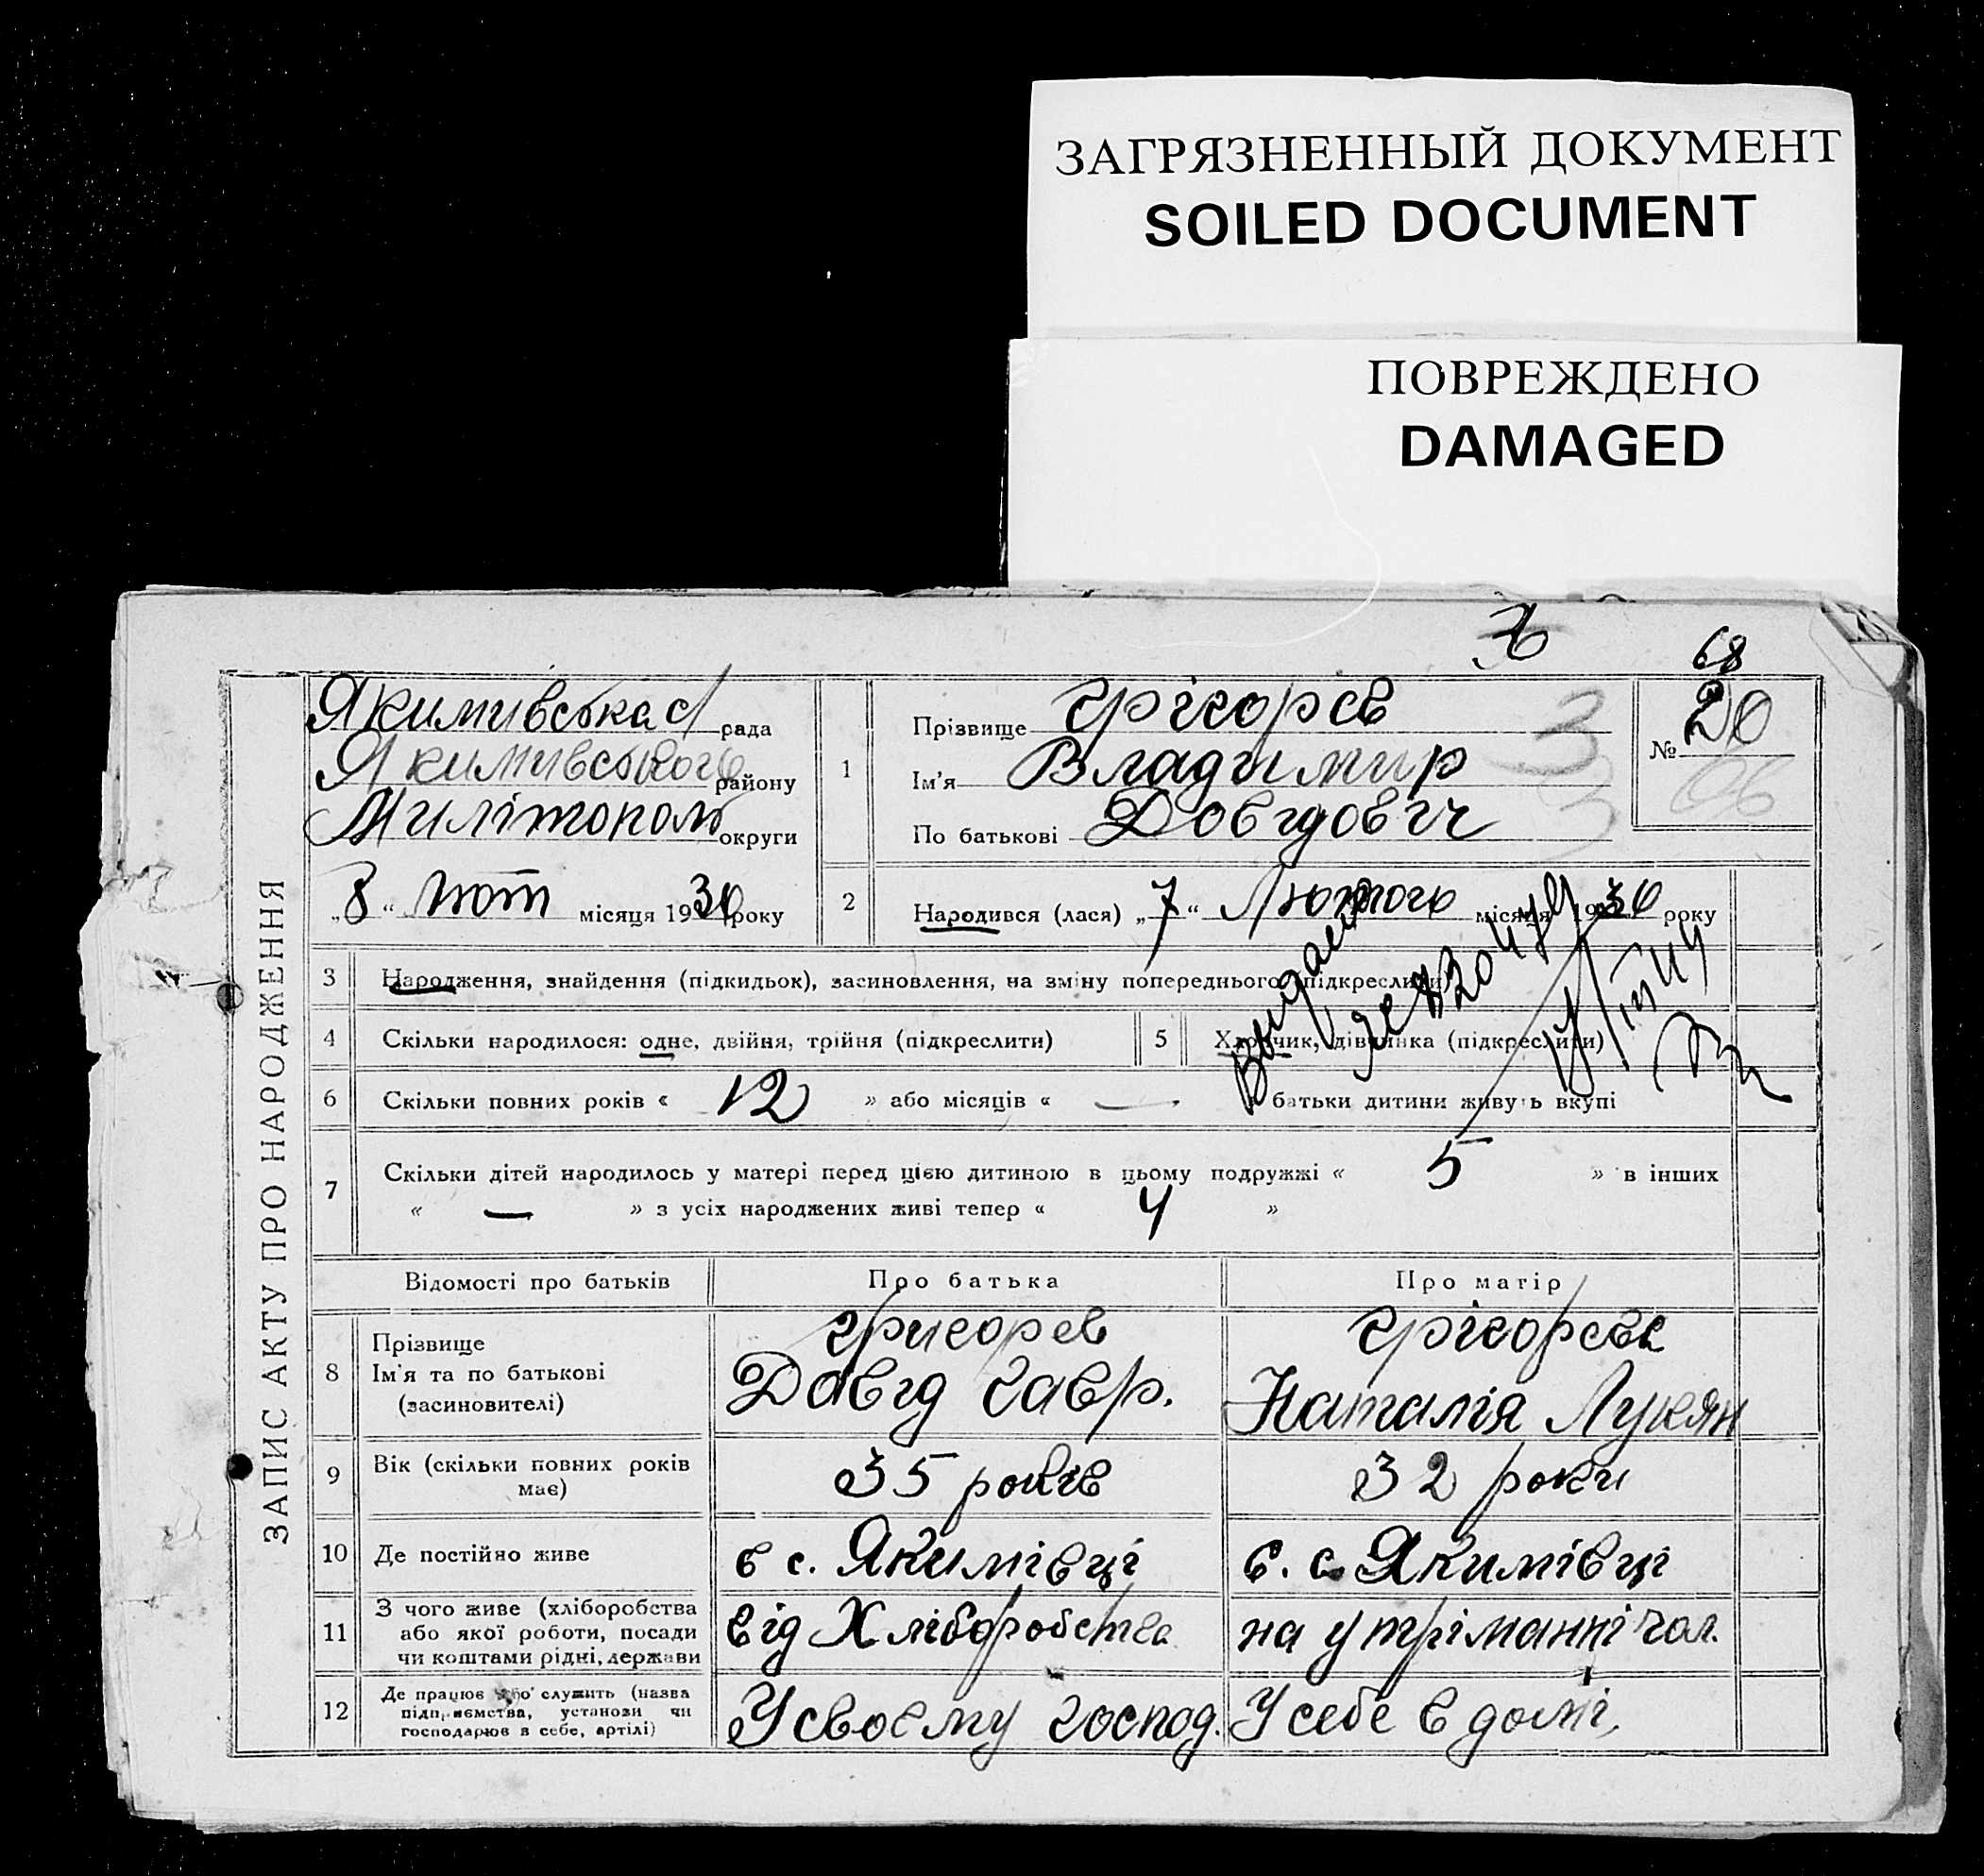 ЗАГРЯЗНЕННЫЙ ДОКУМЕНТ
SOILED DOCUMENT
ПОВРЕЖДЕНО
DAMAGED
68
ЗАПИС АКТУ ПРО НАРОДЖЕННЯ
Якимивська с/ рада
Якимивського району
Милітополь округи
„8“ лют місяця 1930 року
1
Прізвище Грігорєв
Ім'я Владимир
По батькові Довідович
№ 20
2
Народився (лася) „7“ Лютого місяця 1930 року
3 Народження, знайдення (підкидьок), засиновлення, на зміну попереднього (підкреслити)
4 Скільки народилося: одне, двійня, трійня (підкреслити)
5 Хлопчик, дівчинка (підкреслити)
6 Скільки повних років « 12 » або місяців « — » батьки дитини живуть вкупі
7 Скільки дітей народилось у матері перед цією дитиною в цьому подружжі « 5 » в інших
« — » з усіх народжених живі тепер « 4 »
Відомості про батьків
Про батька
Про матір
8 Прізвище
Ім'я та по батькові
(засиновителі)
Григорев
Довід Гавр.
Грігорєва
Наталія Лукян
9 Вік (скільки повних років
має)
35 років
32 роки
10 Де постійно живе
в с. Якимівці
в. с. Якимівці
11 З чого живе (хліборобства
або якої роботи, посади
чи коштами рідні, держави
від Хліборобства
на утріманні чол.
12 Де працює або служить (назва
підприємства, установи чи
господарює в себе, артілі)
У своєму господ.
У себе в домі,